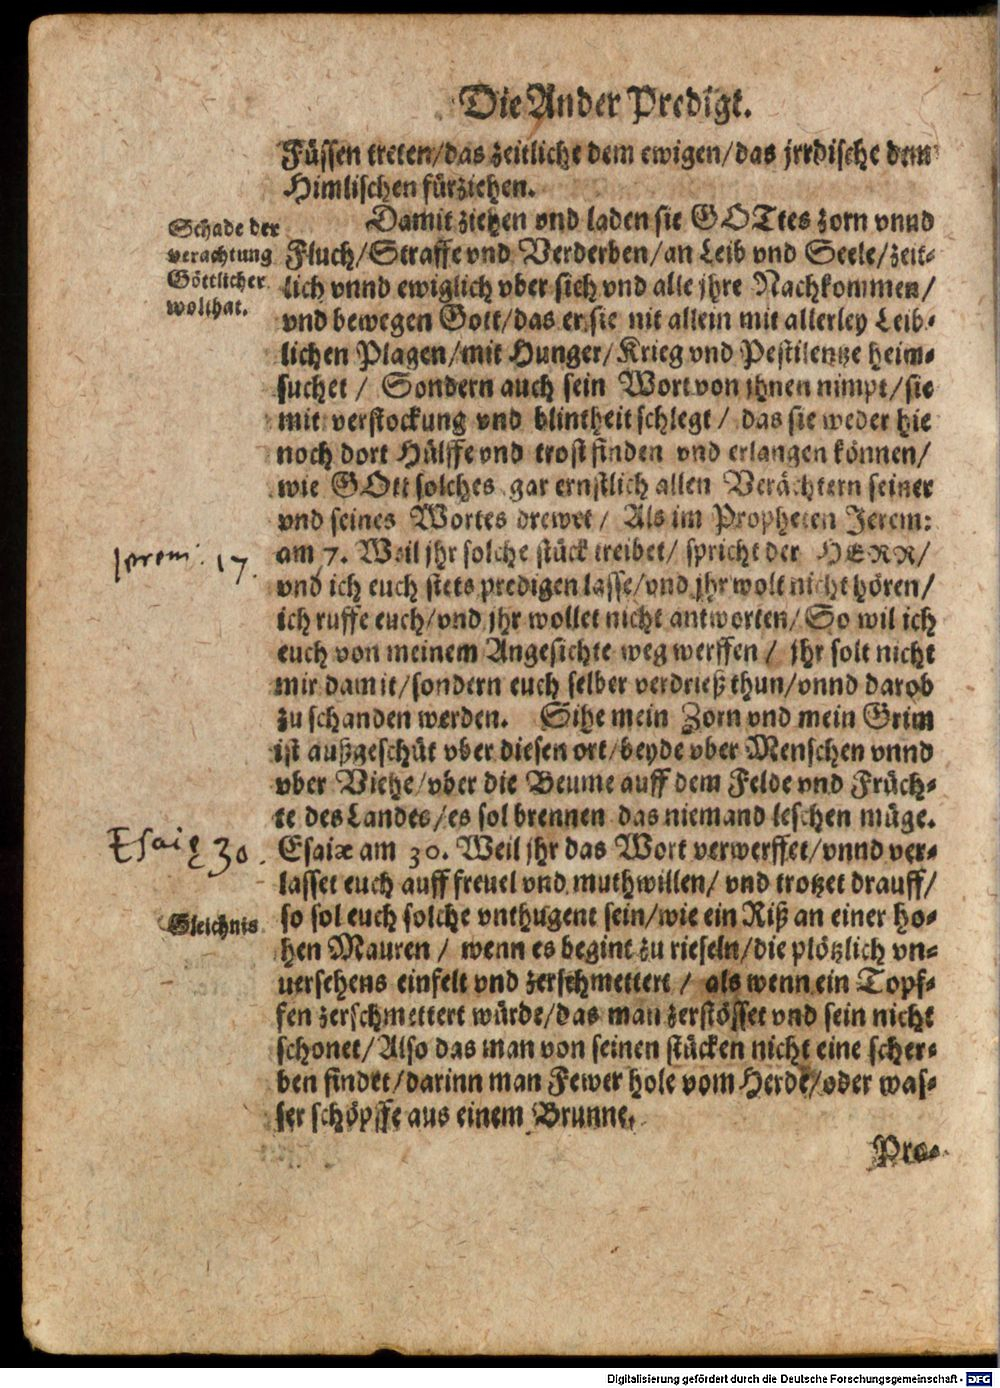 Die Ander Predigt.
Füssen treten/das zeitliche dem ewigen/das jrrdische dem
Himlischen fürziehen.
Schade der
verachtung
Göttlicher
wolthat.
Damit ziehen vnd laden sie GOTtes zorn vnnd
Fluch/Straffe vnd Verderben/an Leib vnd Seele/zeit-
lich vnnd ewiglich vber sich vnd alle jhre Nachkommen/
vnd bewegen Gott/das er sie nit allein mit allerley Leib-
lichen Plagen/mit Hunger/Krieg vnd Pestilentze heim-
suchet / Sondern auch sein Wort von jhnen nimpt/sie
mit verstockung vnd blintheit schlegt / das sie weder hie
noch dort Hülffe vnd trost finden vnd erlangen können/
wie GOtt solches gar ernstlich allen Verächtern seiner
vnd seines Wortes drewet / Als im Propheten Jerem:
Jerem: 17.
am 7. Weil jhr solche stück treibet/ spricht der HERR/
vnd ich euch stets predigen lasse/vnd jhr wolt nicht hören/
ich ruffe euch/vnd jhr wollet nicht antworten/ So wil ich
euch von meinem Angesichte weg werffen / jhr solt nicht
mir damit/sondern euch selber verdrieß thun/vnnd darob
zu schanden werden. Sihe mein Zorn vnd mein Grim
ist außgeschüt vber diesen ort/beyde vber Menschen vnnd
vber Viehe/vber die Beume auff dem Felde vnd Früch-
te des Landes/es sol brennen das niemand leschen müge.
Esaię 30.
Esaiæ am 30. Weil jhr das Wort verwerffet/vnnd ver-
lasset euch auff freuel vnd muthwillen/ vnd trotzet drauff/
Gleichnis
so sol euch solche vnthugent sein/wie ein Riß an einer ho-
hen Mauren / wenn es begint zu rieseln/die plötzlich vn-
uersehens einfelt vnd zerschmettert / als wenn ein Topf-
fen zerschmettert würde/das man zerstösset vnd sein nicht
schonet/Also das man von seinen stücken nicht eine scher-
ben findet/darinn man Fewer hole vom Herde/oder was-
ser schöpffe aus einem Brunne.
Pro-
Digitalisierung gefördert durch die Deutsche Forschungsgemeinschaft - DFG